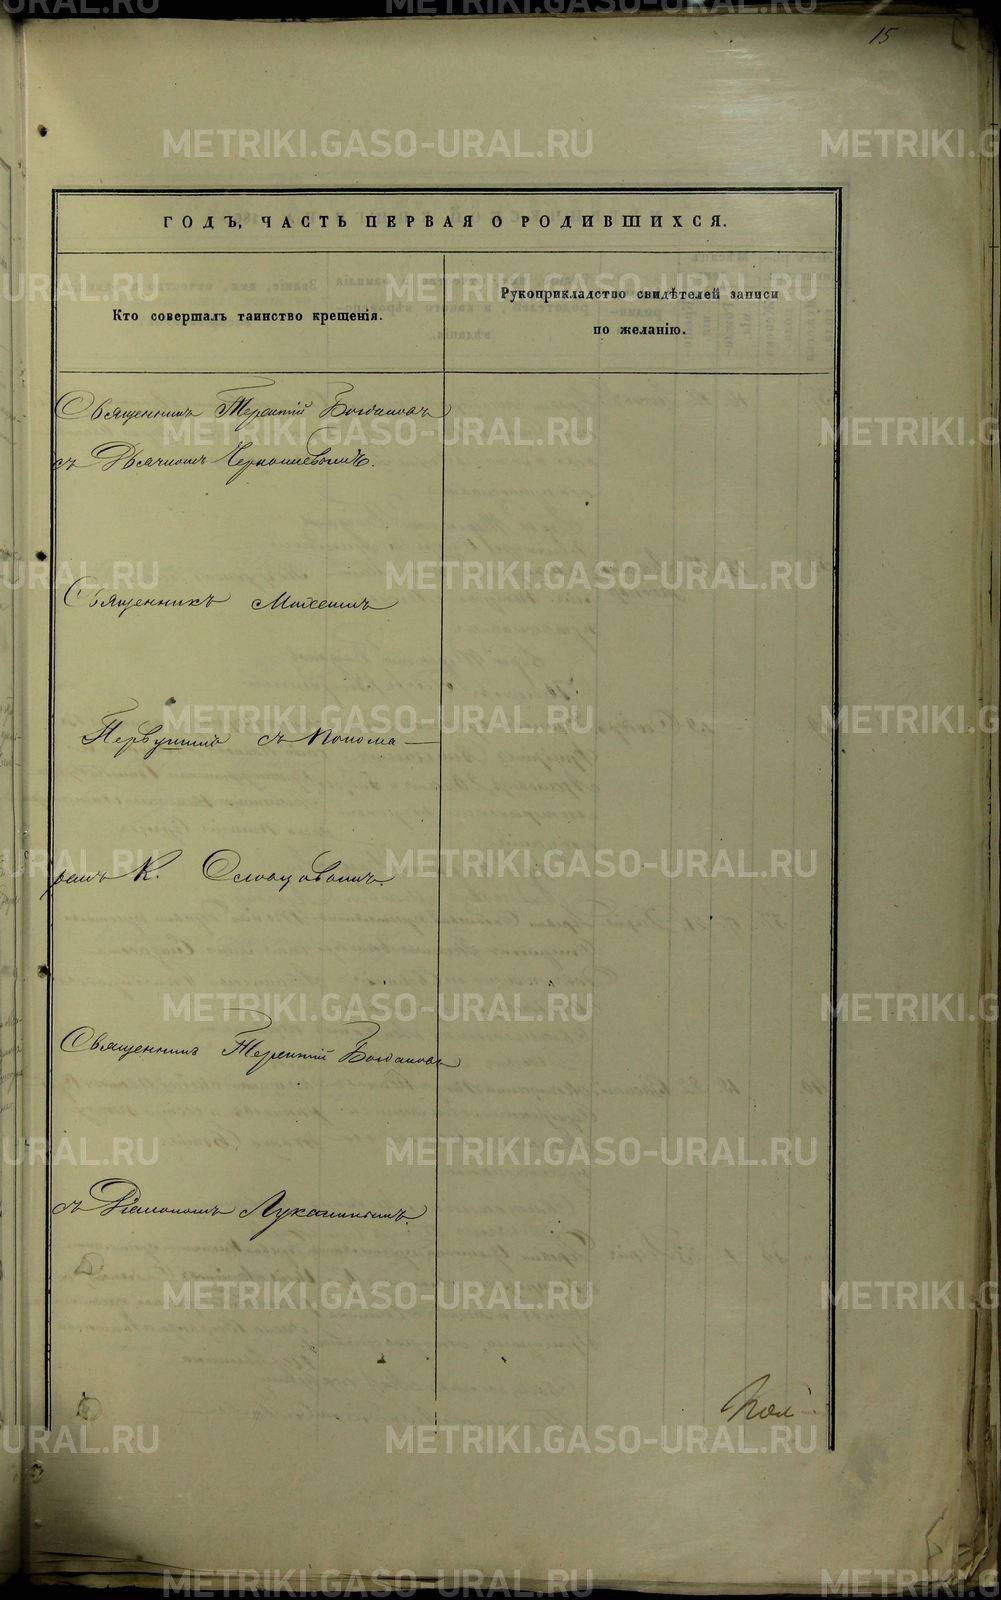 15
ГОДЪ, ЧАСТЬ ПЕРВАЯ О РОДИВШИХСЯ.
Кто совершалъ таинство крещенія.
Рукоприкладство свидѣтелей записи
по желанію.
Священникъ Терентій Богдановъ
съ Дьячкомъ
Священникъ
Первушинъ съ Понома—
ремъ К. Словцовымъ.
Священникъ Терентій Богдановъ
съ Діакономъ Лукканинымъ.
METRIKI.GASO-URAL.RU